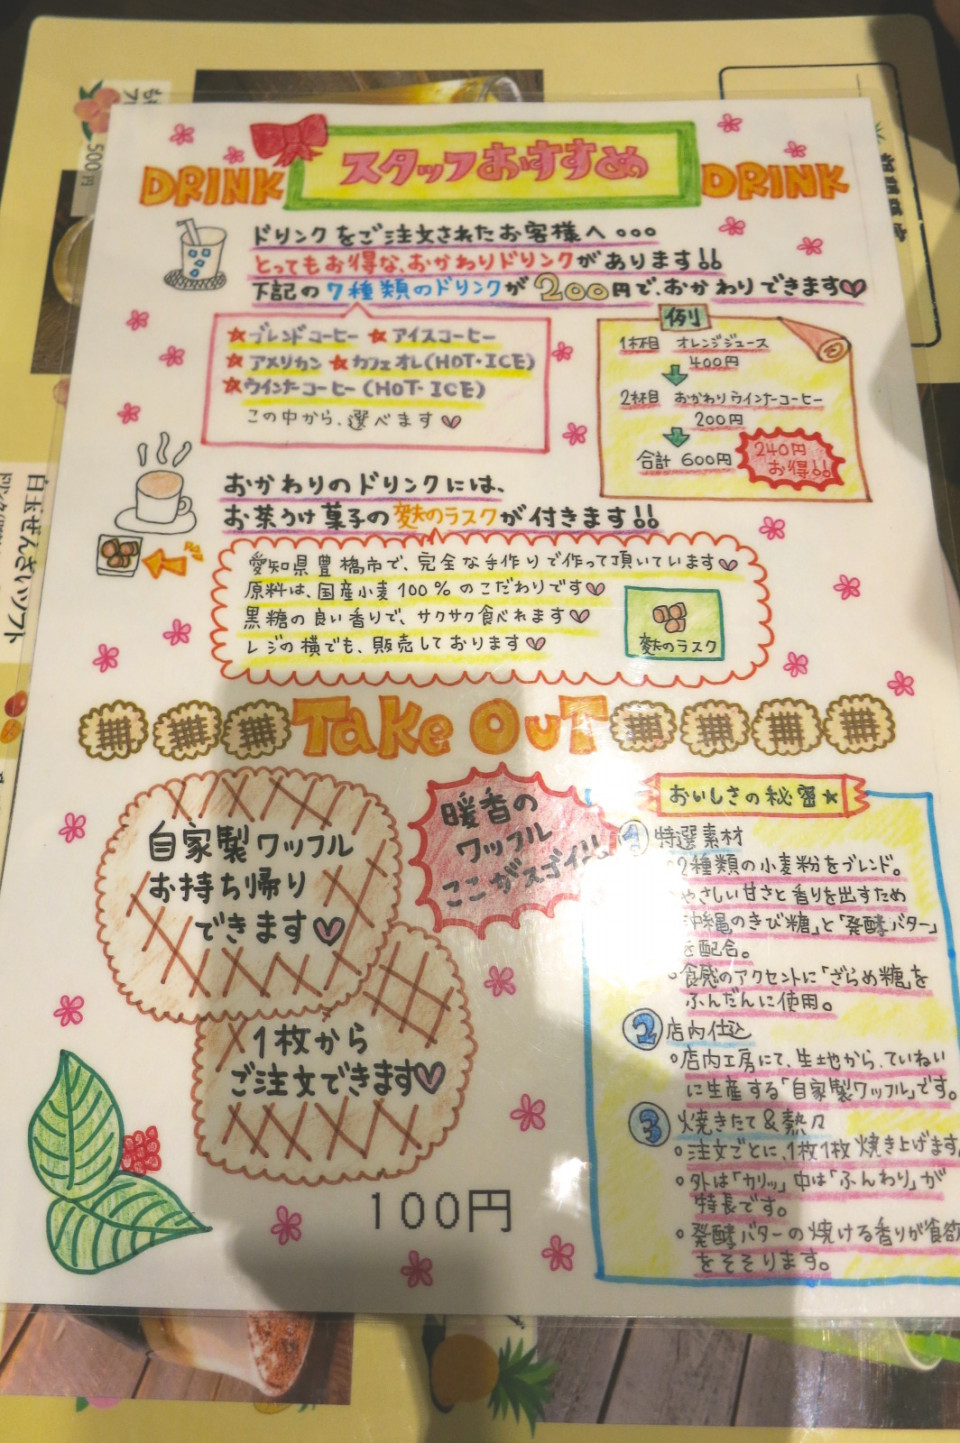 DRINK スタッフおすすめ DRINK
ドリンクをご注文されたお客様へ。。。
とってもお得な、おかわりドリンクがあります!!
下記の7種類のドリンクが200円で、おかわりできます♡
★ブレンドコーヒー ★アイスコーヒー
★アメリカン ★カフェオレ(HOT・ICE)
★ウインナーコーヒー(HOT・ICE)
この中から、選べます♡
例
1杯目 オレンジジュース
400円
2杯目 おかわりウインナーコーヒー
200円
合計 600円
240円
お得!!
おかわりのドリンクには、
お茶うけ菓子の麩のラスクが付きます!!
愛知県豊橋市で、完全な手作りで作って頂いています♡
原料は、国産小麦100%のこだわりです♡
黒糖の良い香りで、サクサク食べれます♡
レジの横でも、販売しております♡
麩のラスク
Take Out
自家製ワッフル
お持ち帰り
できます♡
1枚から
ご注文できます♡
100円
暖香の
ワッフル
ここがスゴイ!!
おいしさの秘密★
1 特選素材
2種類の小麦粉をブレンド。
やさしい甘さと香りを出すため
沖縄のきび糖」と「発酵バター」
を配合。
。食感のアクセントに「ざらめ糖」を
ふんだんに使用。
2 店内仕込
。店内工房にて、生地から、ていねい
に生産する「自家製ワッフル」です。
3 焼きたて&熱々
。注文ごとに、1枚1枚焼き上げます。
。外は「カリッ」中は「ふんわり」が
特長です。
。発酵バターの焼ける香りが食欲
をそそります。
500円
白玉ぜんざいソフト